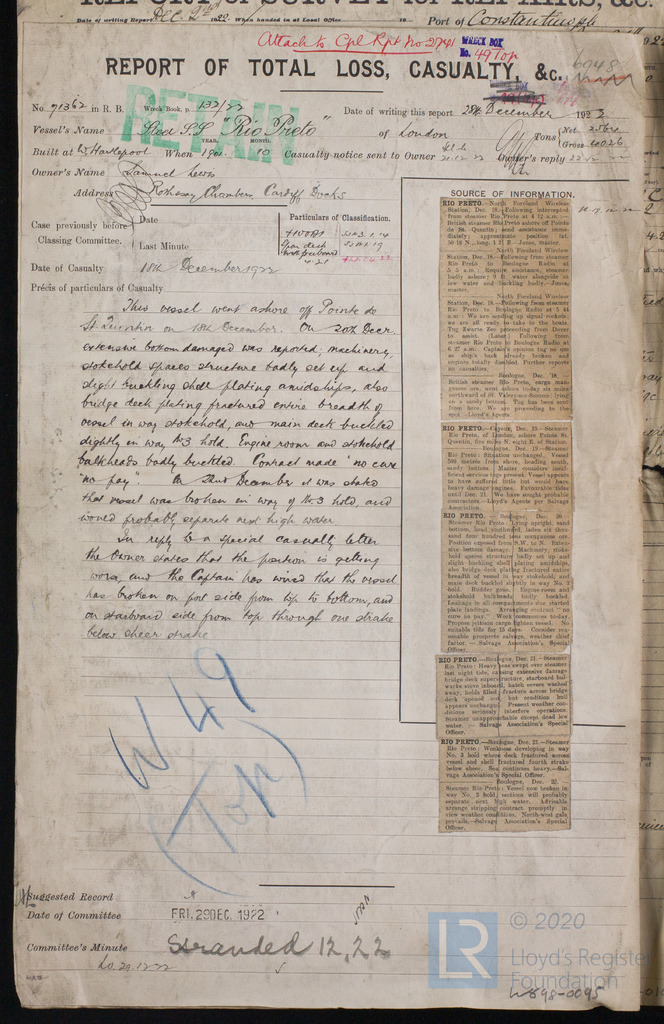 REPORT OF SURVEY FOR REPAIRS, &c.
Date of writing Report Dec. 2nd 1922 When handed in at Local Office 19 Port of Constantinople
Attach to Cpl Rpt No 2741 WRECK BOX
No. 49 Top
REPORT OF TOTAL LOSS, CASUALTY, &c.
RETAIN
No. 71362 in R. B. Wreck Book, p. 132/22 Date of writing this report 28th December 1922
Vessel's Name Steel S.S. "Rio Preto" of London Tons Net 2564
Gross 4026
YEAR. MONTH.
Built at W. Hartlepool When 1901 10 Casualty notice sent to Owner 21.12.22 Owner's reply 22.12.22
Owner's Name Samuel Lewis
Address Rothesay Chambers Cardiff Docks
SOURCE OF INFORMATION.
Case previously before
Classing Committee.
Date
Last Minute
Particulars of Classification.
+100A1
Spar deck
with freeboard
4.21
Date of Casualty 18th December 1922
Précis of particulars of Casualty
This vessel went ashore off Pointe de
St Quentin on 18th December. On 20th Decr.
extensive bottom damaged was reported, machinery,
stokehold spaces structure badly set up and
slight buckling shell plating amidships, also
bridge deck plating fractured entire breadth of
vessel in way stokehold, and main deck buckled
slightly in way No 3 hold. Engine room and stokehold
bulkheads badly buckled. Contract made "no cure
no pay". On 22nd December it was stated
that vessel was broken in way of No. 3 hold, and
would probably separate next high water
In reply to a special casualty letter
the Owner states that the position is getting
worse, and the Captain has wired that the vessel
has broken on port side from top to bottom, and
on starboard side from top through one strake
below sheer strake
RIO PRETO.—North Foreland Wireless
Station, Dec. 18.—Following intercepted
from steamer Rio Preto at 4 12 a.m.:—
British steamer Rio Preto ashore off Pointe
de St. Quentin; send assistance immediately;
approximate position lat.
50 18 N., long. 1 21 E.—Jones, master.
North Foreland Wireless
Station, Dec. 18.—Following from steamer
Rio Preto to Boulogne Radio at
5 5 a.m.: Require assistance, steamer
badly ashore; 9 ft. water alongside at
low water and buckling badly.—Jones,
master.
North Foreland Wireless
Station, Dec. 18.—Following from steamer
Rio Preto to Boulogne Radio at 5 41
a.m.: We are sending up signal rockets;
we are all ready to take to the boats.
Tug Zwarte Zee proceeding from Dover
to assist. (Later) Following from
steamer Rio Preto to Boulogne Radio at
6 27 a.m.: Captain's opinion tug no use
as ship's back already broken and
engines totally disabled. Further reports
no casualties.
Boulogne, Dec. 18.—
British steamer Rio Preto, cargo manganese
ore, went ashore to-day six miles
northward of St. Valery-sur-Somme; lying
on a sandy bottom. Tug has been sent
from here. We are proceeding to the
spot.—Lloyd's Agents.
RIO PRETO.—Cayeux, Dec. 19.—Steamer
Rio Preto, of London, ashore Pointe St.
Quentin, five miles N. eight E. of Station.
Boulogne, Dec. 19.—Steamer
Rio Preto: Situation unchanged. Vessel
500 metres from shore, heading south,
sandy bottom. Master considers insufficient
services tugs present. Vessel appears
to have suffered little but would have
heavy damage engines. Favourable tides
until Dec. 21. We have sought probable
contractors.—Lloyd's Agents per Salvage
Association.
RIO PRETO.—Boulogne, Dec. 20.—
Steamer Rio Preto: Lying upright, sand
bottom, head southward; laden six thousand
four hundred tons manganese ore.
Position exposed from S.W. to N. Extensive
bottom damage. Machinery, stokehold
spaces structure badly set up and
slight buckling shell plating amidships,
also bridge-deck plating fractured entire
breadth of vessel in way stokehold, and
main deck buckled slightly in way No. 3
hold. Rudder gone. Engine-room and
stokehold bulkheads badly buckled.
Leakage in all compartments due started
plate landings. Arranging contract "no
cure no pay." Work commences to-day.
Propose jettison cargo lighten vessel. No
suitable tide for 15 days. Consider reasonable
prospects salvage, weather chief
factor. — Salvage Association's Special
Officer.
RIO PRETO.—Boulogne, Dec. 21.—Steamer
Rio Preto: Heavy seas swept over steamer
last night tide, causing extensive damage
bridge deck superstructure, starboard bulwarks
stove inboard, hatch covers washed
away, holds filled; fracture across bridge
deck opened out, but condition hull
appears unchanged. Present weather conditions
seriously interfere operations.
Steamer unapproachable except dead low
water. — Salvage Association's Special
Officer.
RIO PRETO.—Boulogne, Dec. 21.—Steamer
Rio Preto: Weakness developing in way
No. 3 hold where deck fractured across
vessel and shell fractured fourth strake
below sheer. Sea continues heavy.—Salvage
Association's Special Officer.
Boulogne, Dec. 22.
Steamer Rio Preto: Vessel now broken in
way No. 3 hold, sections will probably
separate next high water. Advisable
arrange stripping contract promptly in
view weather conditions. North-west gale
prevails.—Salvage Association's Special
Officer.
W 49
(Top)
Suggested Record
Date of Committee FRI. 29 DEC. 1922
Committee's Minute Stranded 12,22
Lo. 29.12.22
LR © 2020
Lloyd's Register
Foundation
W898-0095